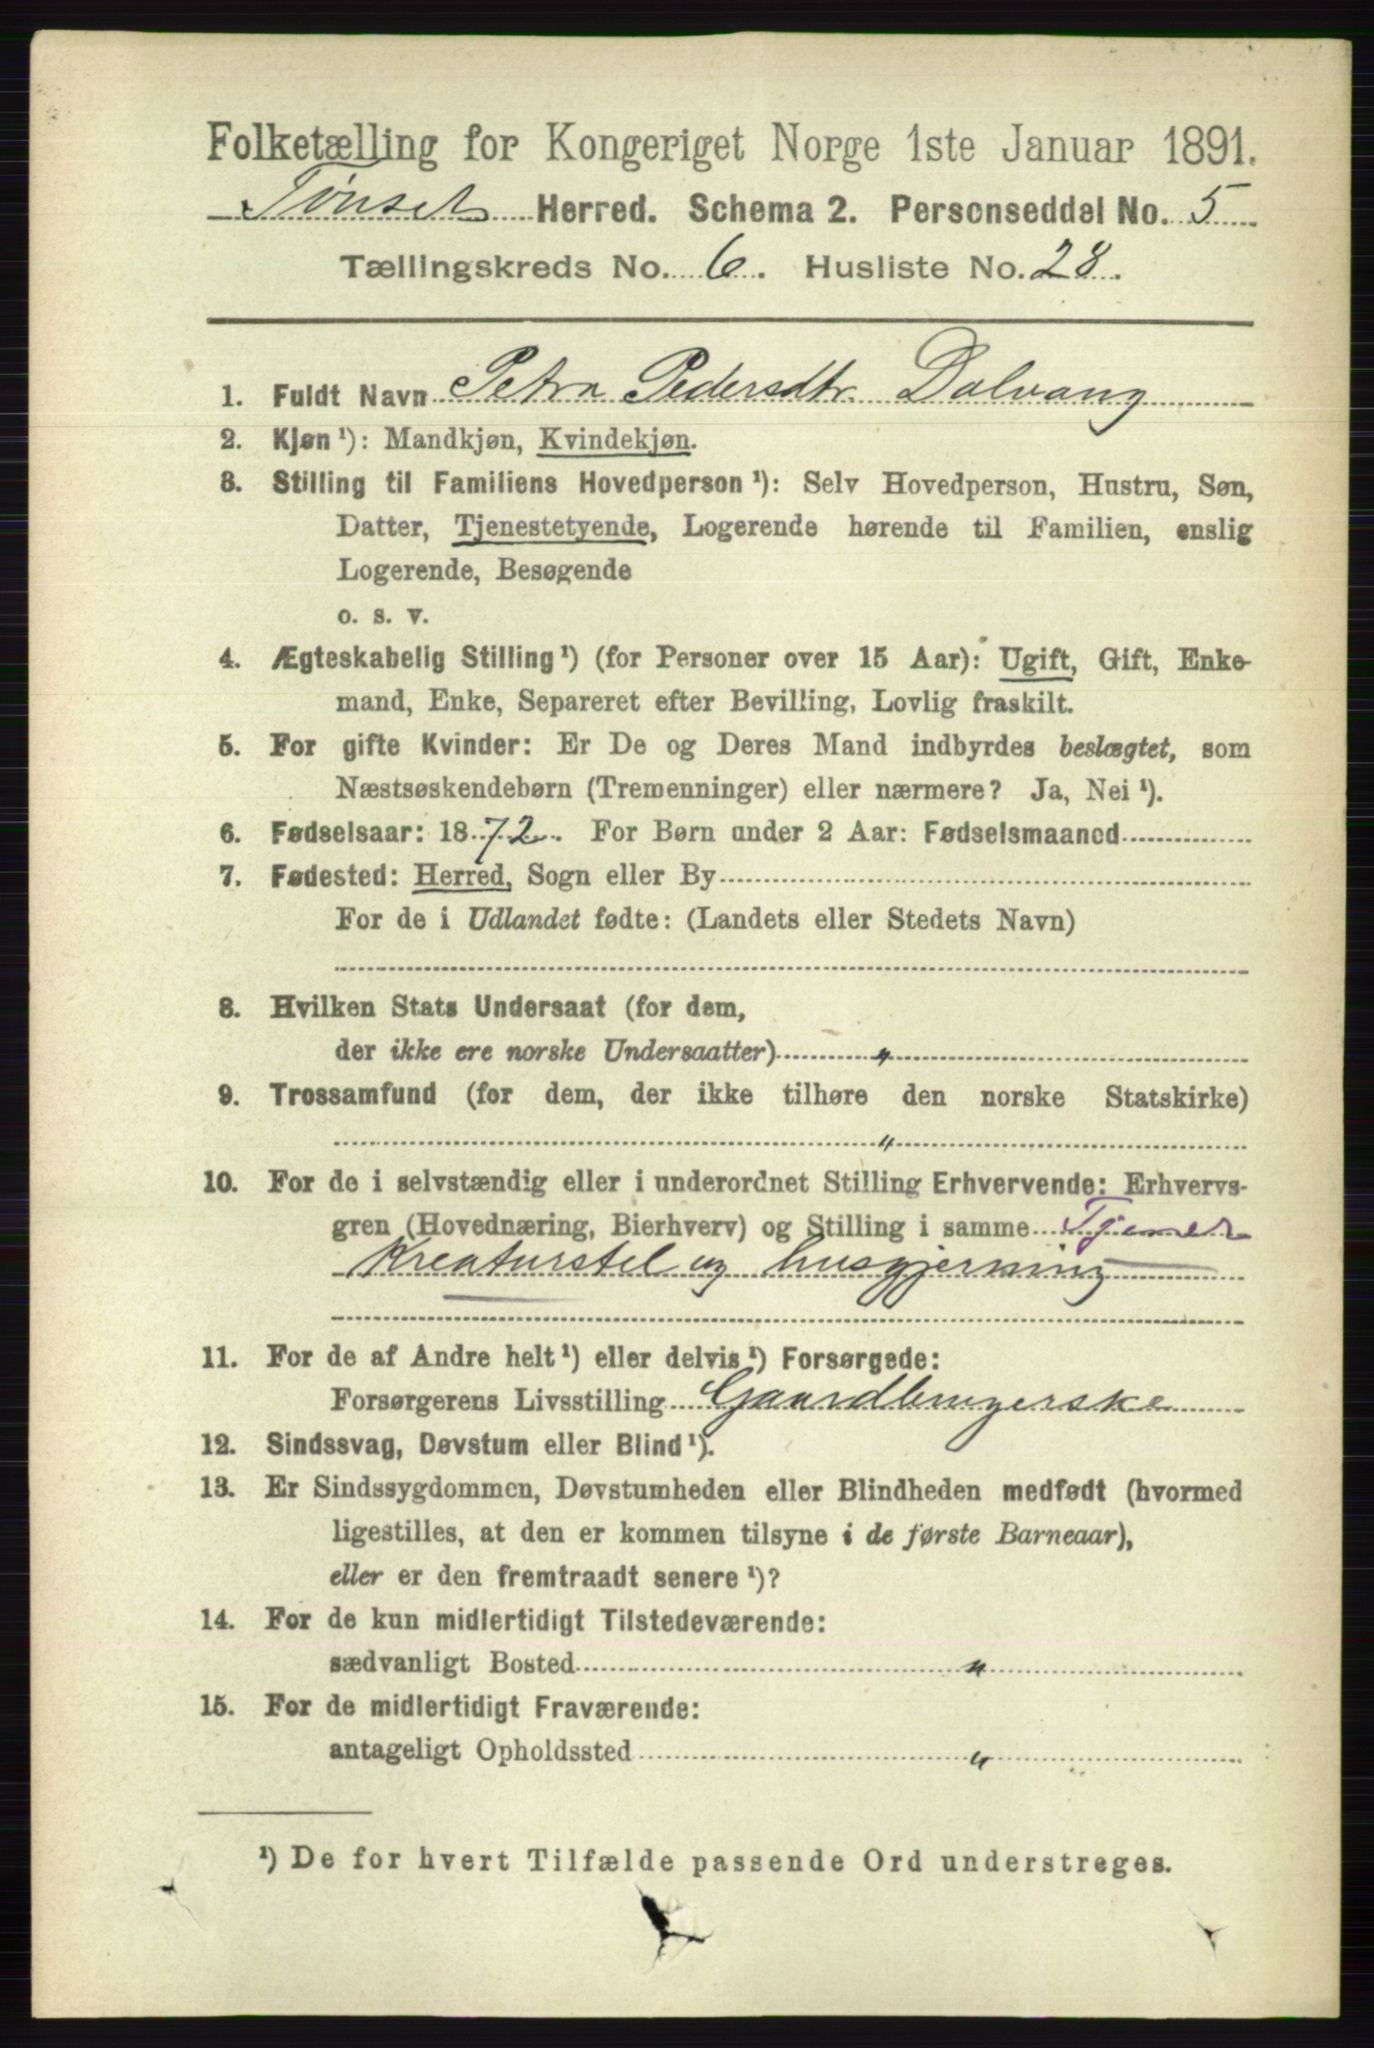 Folketælling for Kongeriget Norge 1ste Januar 1891.
Tønset Herred. Schema 2. Personseddel No. 5
Tællingskreds No. 6. Husliste No. 28.
1. Fuldt Navn Petra Pedersdtr. Dalvang
2. Kjøn ¹): Mandkjøn, Kvindekjøn.
3. Stilling til Familiens Hovedperson ¹): Selv Hovedperson, Hustru, Søn,
Datter, Tjenestetyende, Logerende hørende til Familien, enslig
Logerende, Besøgende
o. s. v.
4. Ægteskabelig Stilling ¹) (for Personer over 15 Aar): Ugift, Gift, Enke-
mand, Enke, Separeret efter Bevilling, Lovlig fraskilt.
5. For gifte Kvinder: Er De og Deres Mand indbyrdes beslægtet, som
Næstsøskendebørn (Tremenninger) eller nærmere? Ja, Nei ¹).
6. Fødselsaar: 1872. For Børn under 2 Aar: Fødselsmaaned
7. Fødested: Herred, Sogn eller By
For de i Udlandet fødte: (Landets eller Stedets Navn)
8. Hvilken Stats Undersaat (for dem,
der ikke ere norske Undersaatter) "
9. Trossamfund (for dem, der ikke tilhøre den norske Statskirke)
"
10. For de i selvstændig eller i underordnet Stilling Erhvervende: Erhvervs-
gren (Hovednæring, Bierhverv) og Stilling i samme Tjener
Kreaturstel og husgjerning
11. For de af Andre helt ¹) eller delvis ¹) Forsørgede:
Forsørgerens Livsstilling Gaardbrugerske
12. Sindssvag, Døvstum eller Blind ¹).
13. Er Sindssygdommen, Døvstumheden eller Blindheden medfødt (hvormed
ligestilles, at den er kommen tilsyne i de første Barneaar),
eller er den fremtraadt senere ¹)?
14. For de kun midlertidigt Tilstedeværende:
sædvanligt Bosted "
15. For de midlertidigt Fraværende:
antageligt Opholdssted "
¹) De for hvert Tilfælde passende Ord understreges.